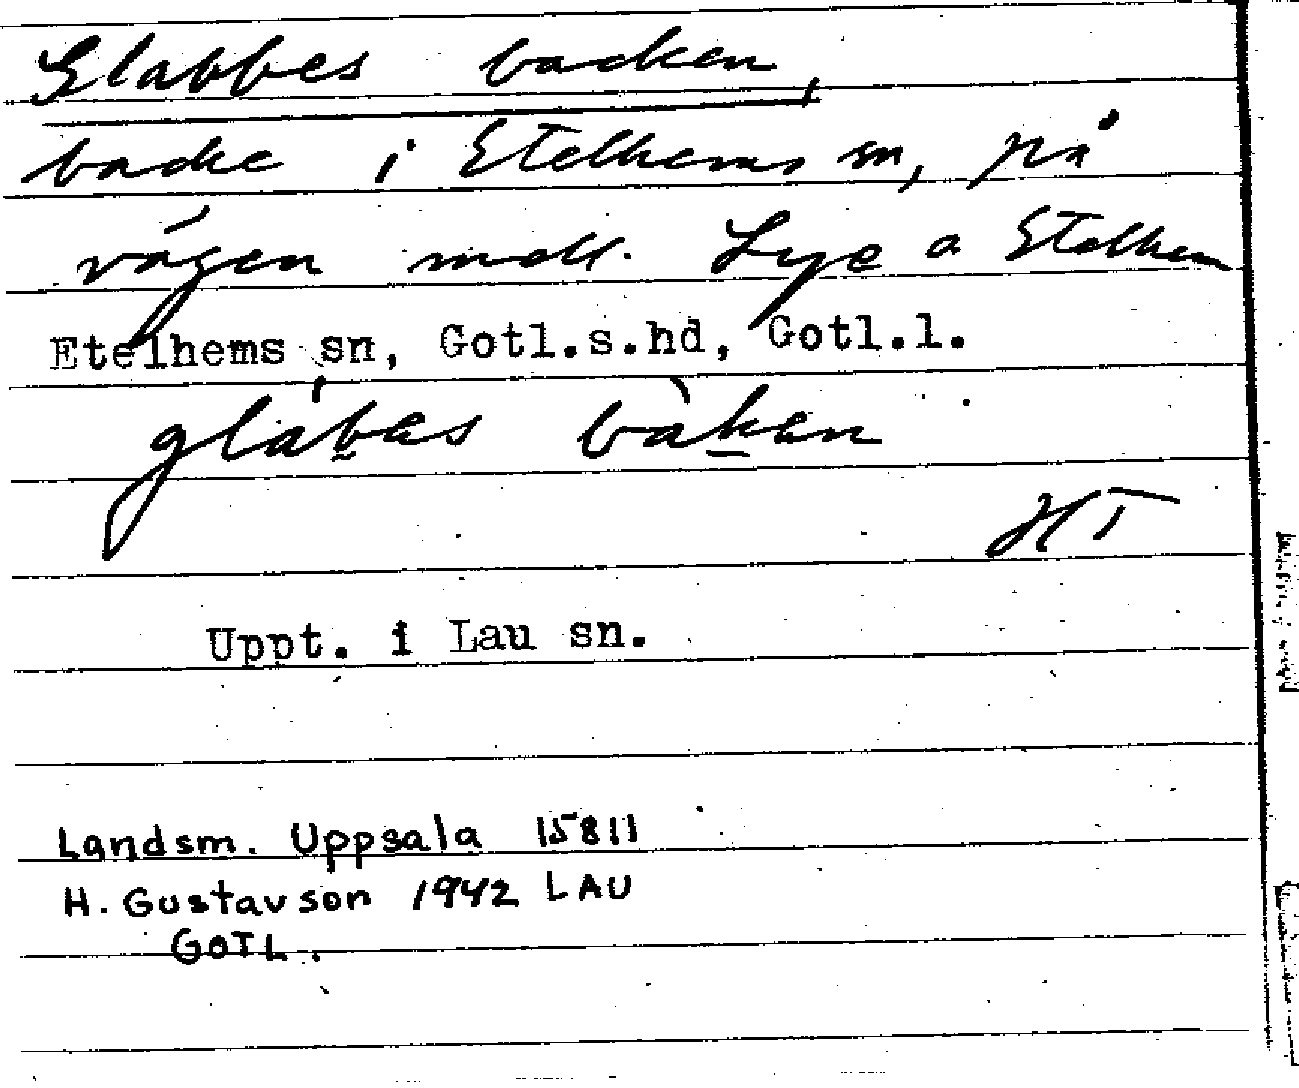 Glabbes backen,
backe i Etelhems sn, på
vägen mell. Lye o Etelhem
Etelhems sn, Gotl.s.hd, Gotl.l.
glabas bakan
HT
Uppt. i Lau sn.
Landsm. Uppsala 15811
H. Gustavson 1942 LAU
GOTL.